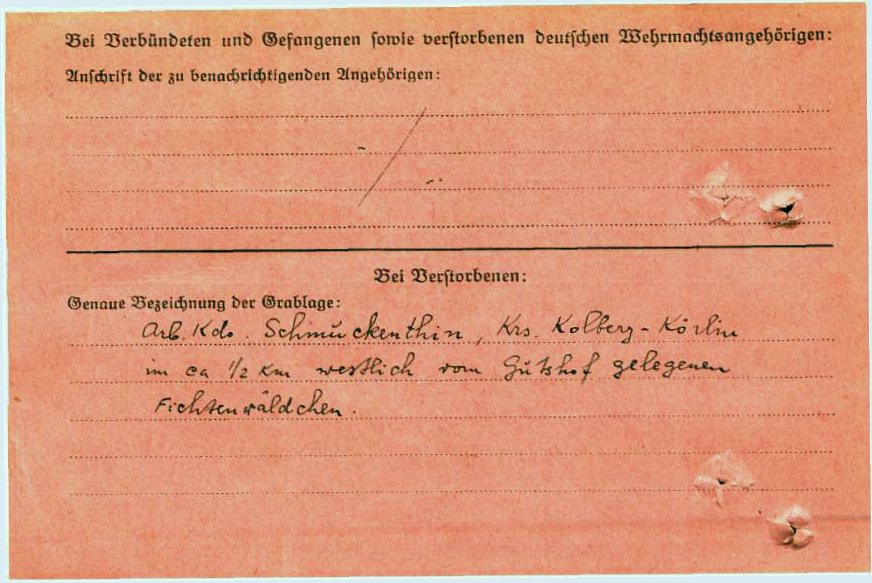 Bei Verbündeten und Gefangenen sowie verstorbenen deutschen Wehrmachtsangehörigen:
Anschrift der zu benachrichtigenden Angehörigen:
Bei Verstorbenen:
Genaue Bezeichnung der Grablage:
Arb. Kdo. Schmuckenthin, Krs. Kolberg-Körlin
im ca 1/2 km westlich vom Gutshof gelegenen
Fichtenwäldchen.